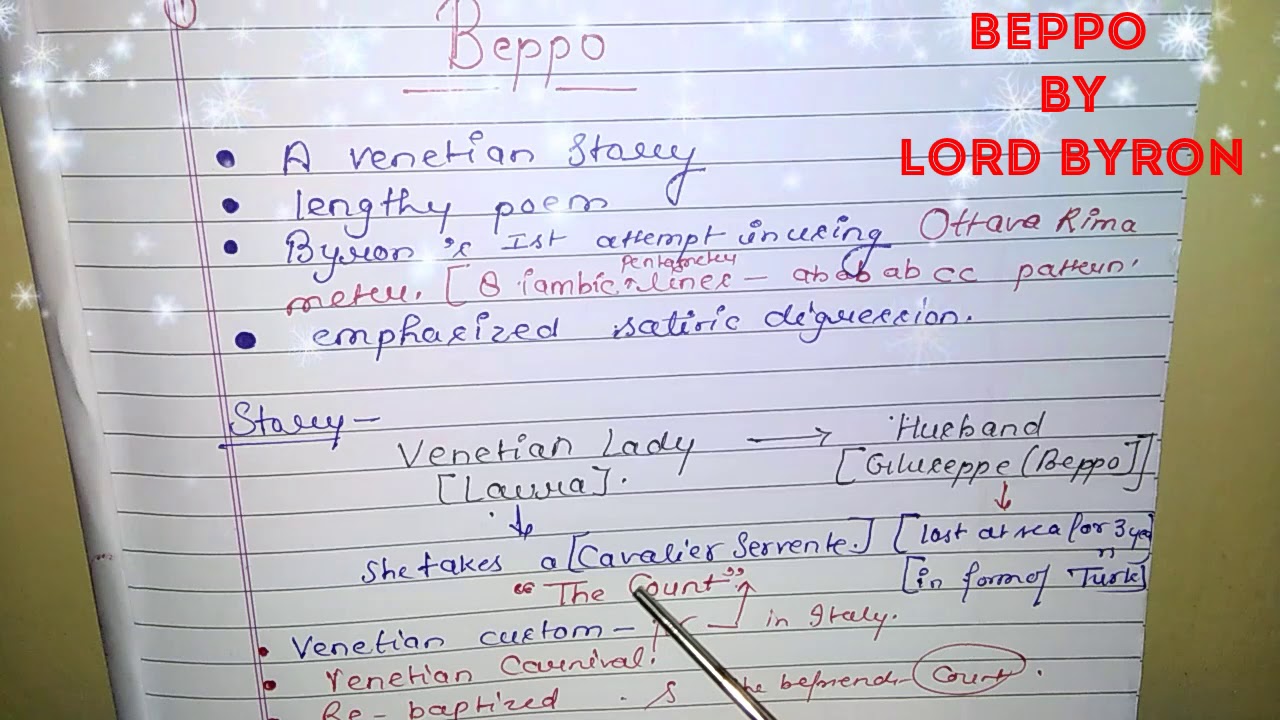 BEPPO
BY
LORD BYRON
Beppo
• A venetian Story
• lengthy poem
• Byron's Ist attempt in using Ottava Rima
meter. [8 iambic pentametry lines – ab ab ab cc pattern.
• emphasized satiric degression.
Story –
Venetian Lady → Husband
[Laura]. [Giuseppe (Beppo)]
She takes a [Cavalier Servente.] [lost at sea for 3 yrs]
"The Count" [in form of Turk]
• Venetian custom – in Italy.
• Venetian Carnival.
Re-baptized the befriends Count.